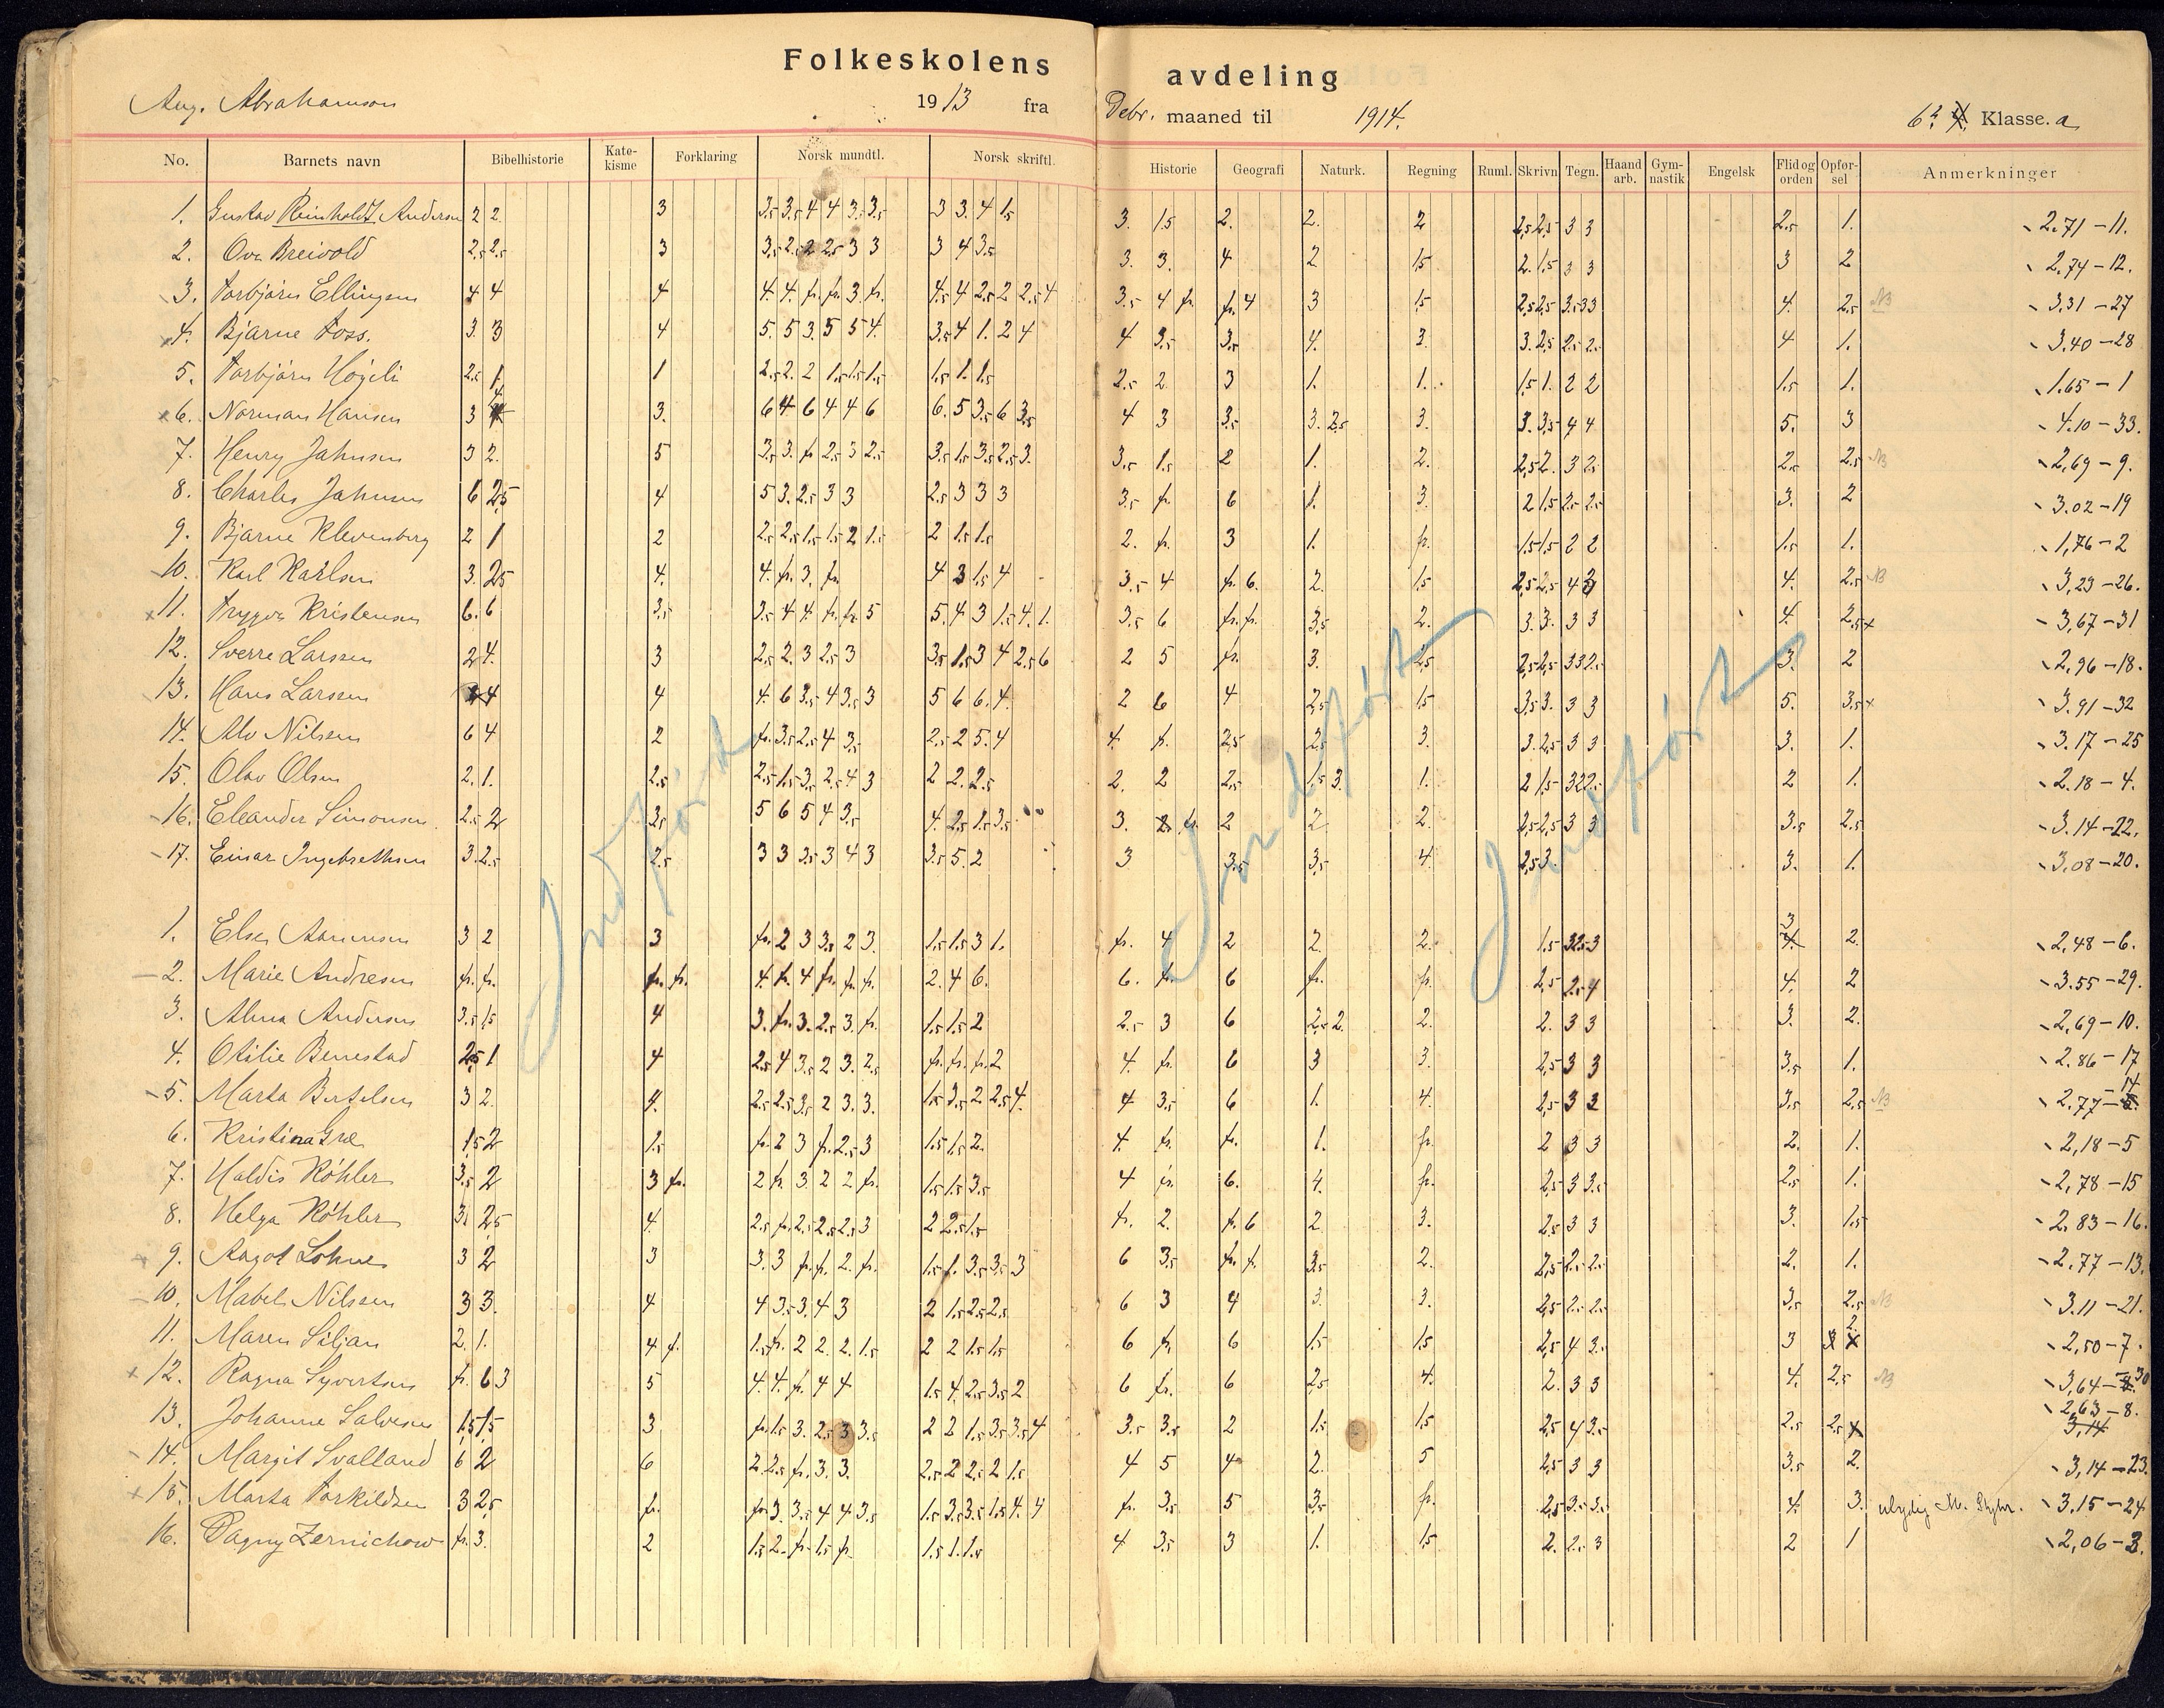 Folkeskolens avdeling
Aug. Abrahamson 1913 fra Debr. maaned til 1914. 6. Klasse. a
No. Barnets navn Bibelhistorie Katekisme Forklaring Norsk mundtl. Norsk skriftl. Historie Geografi Naturk. Regning Ruml. Skrivn Tegn. Haandarb. Gymnastik Engelsk Flid og orden Opførsel Anmerkninger
1. Gustav Reinholdt Andersen 2 2. 3 3.5 3.5 4 4 3. 3.5 3 3. 4 1.5 3. 1.5 2. 2. 2 2.5 2.5 3 3 2.5 1. 2.71 - 11.
2. Ove Breivold 2.5 2.5 3 3.5 2.5 2 2.5 3 3 3 4 3.5 3. 3. 4 2 1.5 2. 1.5 3 3 3 2 2.74 - 12.
3. Torbjørn Ellingsen 4 4 4 4. 4. fr. fr. 3. fr. 4.5 4 2.5 2 2.5 4 3.5 4 fr. fr. 4 3 1.5 2.5 2.5 3.5 3 3 4. 2.5 NB 3,31 - 27
4. Bjarne Foss. 3. 3 4 5. 5 3. 5 5 4. 3.5 4 1. 2 4 4 3.5 3.5 4. 3. 3. 2.5 2.5 2.5 4 1. 3,40 - 28
5. Torbjørn Høgeli 2.5 1. 1 2.5 2. 2 1.5 1.5 1.5 1.5 1. 1.5 2.5 2 3 1. 1. 1.5 1. 2 2 1.5 1. 1.65 - 1
6. Norman Hansen 3 4 3. 6 4 6 4 4 6 6. 5 3.5 6 3.5 4 3 3.5 3. 2.5 3. 3. 3.5 4 4 5. 3 4.10 - 33.
7. Henry Jahnsen 3 2. 5 3.5 3. fr. 2.5 3 2.5 3.5 1.5 3.5 2.5 3. 3.5 1.5 2 1. 2. 2.5 2. 3 2.5 2.5 2.5 NB 2,69 - 9.
8. Charles Jahnsen 6 2.5 4 5 3. 2.5 3 3 2.5 3 3 3 3.5 fr. 6 1. 3. 2 1.5 2.5 2.5 3. 2 3.02 - 19
9. Bjarne Klevenberg 2 1 2 2.5 2.5 1.5 1.5 2 1.5 2 1.5 1.5 2. fr. 3 1. fr. 1.5 1.5 2 2 1.5 1. 1,76 - 2
10. Karl Karlsen 3. 2.5 4. 4. fr. 3. fr. 4 3 1.5 4 3.5 4 fr. 6. 2. 1.5 2.5 2.5 4 3 4. 2.5 NB 3,23 - 26.
11. Trygve Kristensen 6. 6 3.5 3.5 4 4. fr. fr. 5 5. 4 3 1.5 4. 1. 3.5 6 fr. fr. 3.5 2. 3. 3. 3 3 4. 2.5 x 3,67 - 31
12. Sverre Larssen 2 4. 3 2.5 2. 3 2.5 3 3.5 1.5 3 4 2.5 6 2 5 fr. 3. 2.5 2.5 2.5 3 3 2.5 3. 2 2,96 - 18.
13. Hans Larssen 4 4 4. 6 3.5 4 3.5 3 5 6 6. 4. 2 6 4 2.5 1.5 3.5 3. 3 3 5. 3.5 x 3.91 - 32
14. Alv Nilsen 6 4 2 fr. 3.5 2.5 4 3.5 2.5 2 5. 4 4. fr. 2.5 2.5 3. 3. 2.5 3 3 3. 1. 3.17 - 25
15. Olav Olsen 2. 1. 2.5 2.5 1.5 3. 2.5 4 3 2 2. 2.5 2. 2 2.5 1.5 3. 1. 2 1.5 3 2 2.5 2 1. 2.18 - 4.
16. Eleander Simonsen 2.5 2 3.5 5 6 5 4 3.5 4. 2.5 1.5 3.5 3. fr. 2 2 2. 2.5 2.5 3 3 3.5 2.5 3.14 - 22.
17. Einar Ingebrethsen 3. 2.5 2.5 3 3 2.5 3 4 3 3.5 5. 2 3 3.5 3.5 4. 2.5 3. 3. 1. 3,08 - 20.
1. Else Aanensen 3 2 3 fr. 2 3 3.5 2 3. 1.5 1.5 3 1. fr. 4 2 2. 2. 1.5 3 2.5 3 3 2. 2,48 - 6.
2. Marie Andresen fr. fr. fr. fr. 4. fr. 4 fr. fr. fr. 2. 4 6. 6. fr. 6 fr. fr. 2.5 2.5 4 4. 2 3.55 - 29.
3. Alma Andersen 3.5 1.5 4 3. fr. 3. 2.5 3. fr. 1.5 1.5 2 2.5 3 6 2.5 2. 2. 2. 3 3 3. 2. 2,69 - 10.
4. Otilie Benestad 2.5 1 4 2.5 4 3.5 2 3. 2.5 fr. fr. fr. 2 4. fr. 6 3 3. 2.5 3 3 3.5 1. 2.86 - 17
5. Marta Bertelsen 3 2. 4. 2.5 2.5 3.5 2 3. 3. 1.5 3.5 2 2.5 4. 4 3.5 6 1. 4. 2.5 3 3 3.5 2.5 NB 2.77 - 14
6. Kristina Gre 1.5 2 1.5 fr. 2 3 fr. 2.5 3 1.5 1.5 2. 4. fr. fr. 1. fr. 2 3 3 2. 1. 2,18 - 5
7. Haldis Köhler 3.5 2 3 fr. 2 fr. 3 2 2 fr. 1.5 1.5 3.5 4 fr. 6. 4. fr. 2.5 3 3.5 2.5 1. 2,78 - 15
8. Helga Köhler 3. 2.5 4. 2.5 fr. 2.5 2.5 2.5 3 2 2.5 1.5 fr. 2. fr. 6 2 3. 2.5 3 3 3. 1.5 2.83 - 16.
9. Aagot Lohne 3 2 3 3. 3 fr. fr. 2. fr. 1.5 1. 3.5 3.5 3 6 3.5 fr. fr. 3.5 2. 2.5 2.5 2.5 2. 1. 2.77 - 13.
10. Mabel Nilssen 3 3. 4 4 3.5 3. 4 3 2 1.5 2.5 2.5 6 3 4 3. 3. 2.5 2.5 2.5 3.5 2.5 NB 3.11 - 21.
11. Maren Siljan 2. 1. 4. fr. 1.5 fr. 2 2. 2. 1.5 2 2 1.5 1.5 6 fr. 6 1.5 1.5 2.5 4 3.5 3 2. 2,50 - 7.
12. Ragna Syvertsen fr. 6 3 5 4. 4. fr. 4 4 1.5 4. 2.5 3.5 2 6 fr. 6 2.5 4. 2. 3 3 4. 2.5 NB 3,64 - 30
13. Johanne Salvesen 1.5 1.5 3 fr. 1.5 3. 2.5 3 3.5 2 2 1.5 3.5 3.5 4 3.5 3.5 2 1.5 1.5 2.5 4 3.5 2.5 2.5 x 2,63 - 8. 3,14
14. Margit Svalland 6 2 6 2. 2.5 fr. 3. 3. 2.5 2 2.5 2 1.5 4 5 4 2. 5 2.5 3 3 3.5 2. 3,14 - 23.
15. Marta Torkildsen 3 2.5 fr. fr. 3 3.5 4 4 3.5 1.5 3.5 3.5 1.5 4. 4 fr. 3.5 5 3.5 fr. 2.5 3.5 3.5 4. 3. ulydig M. 3.15 - 24
16. Dagny Zernichow fr. 3. 2 1.5 2. fr. 1.5 fr. 1.5 1. 1.5 4 3.5 3 1. 1.5 2. 2.5 3 2 1 2,06 - 3.
Indført
Indført
Indført